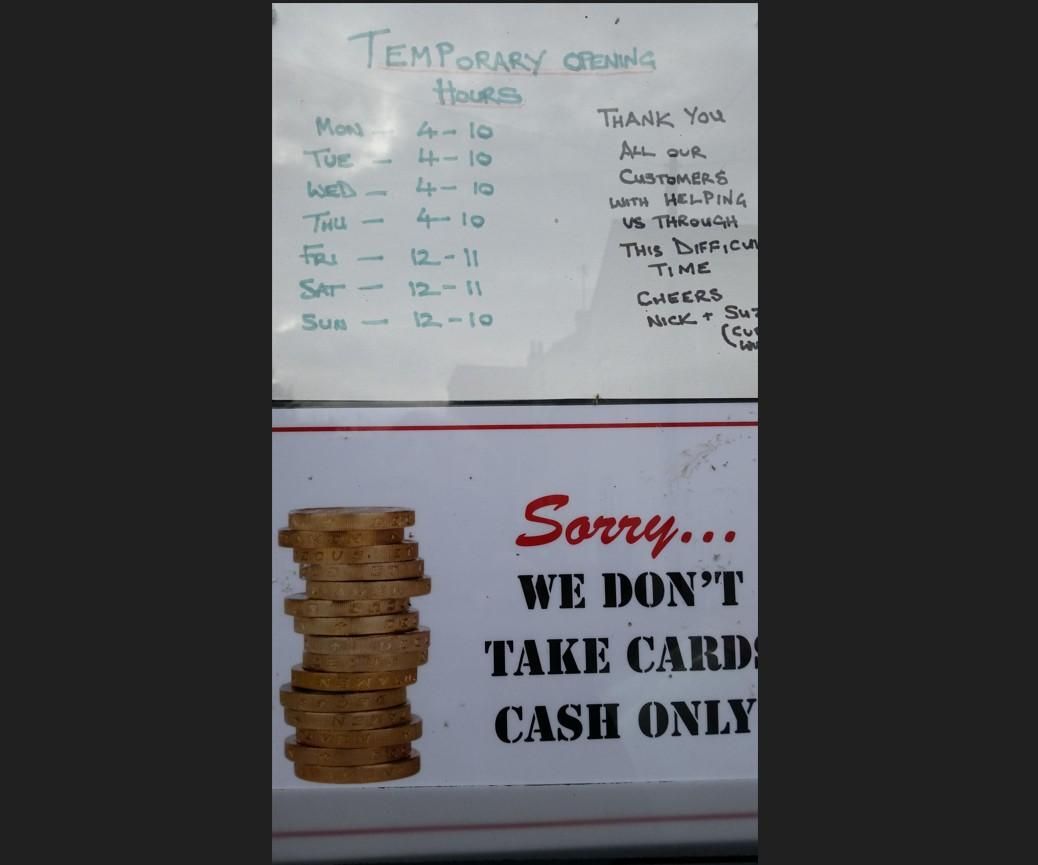 TEMPORARY OPENING
HOURS
MON — 4-10
TUE — 4-10
WED — 4-10
THU — 4-10
FRI — 12-11
SAT — 12-11
SUN — 12-10
THANK YOU
ALL OUR
CUSTOMERS
WITH HELPING
US THROUGH
THIS DIFFICUL
TIME
CHEERS
NICK +
Sorry...
WE DON'T
TAKE CARDS
CASH ONLY